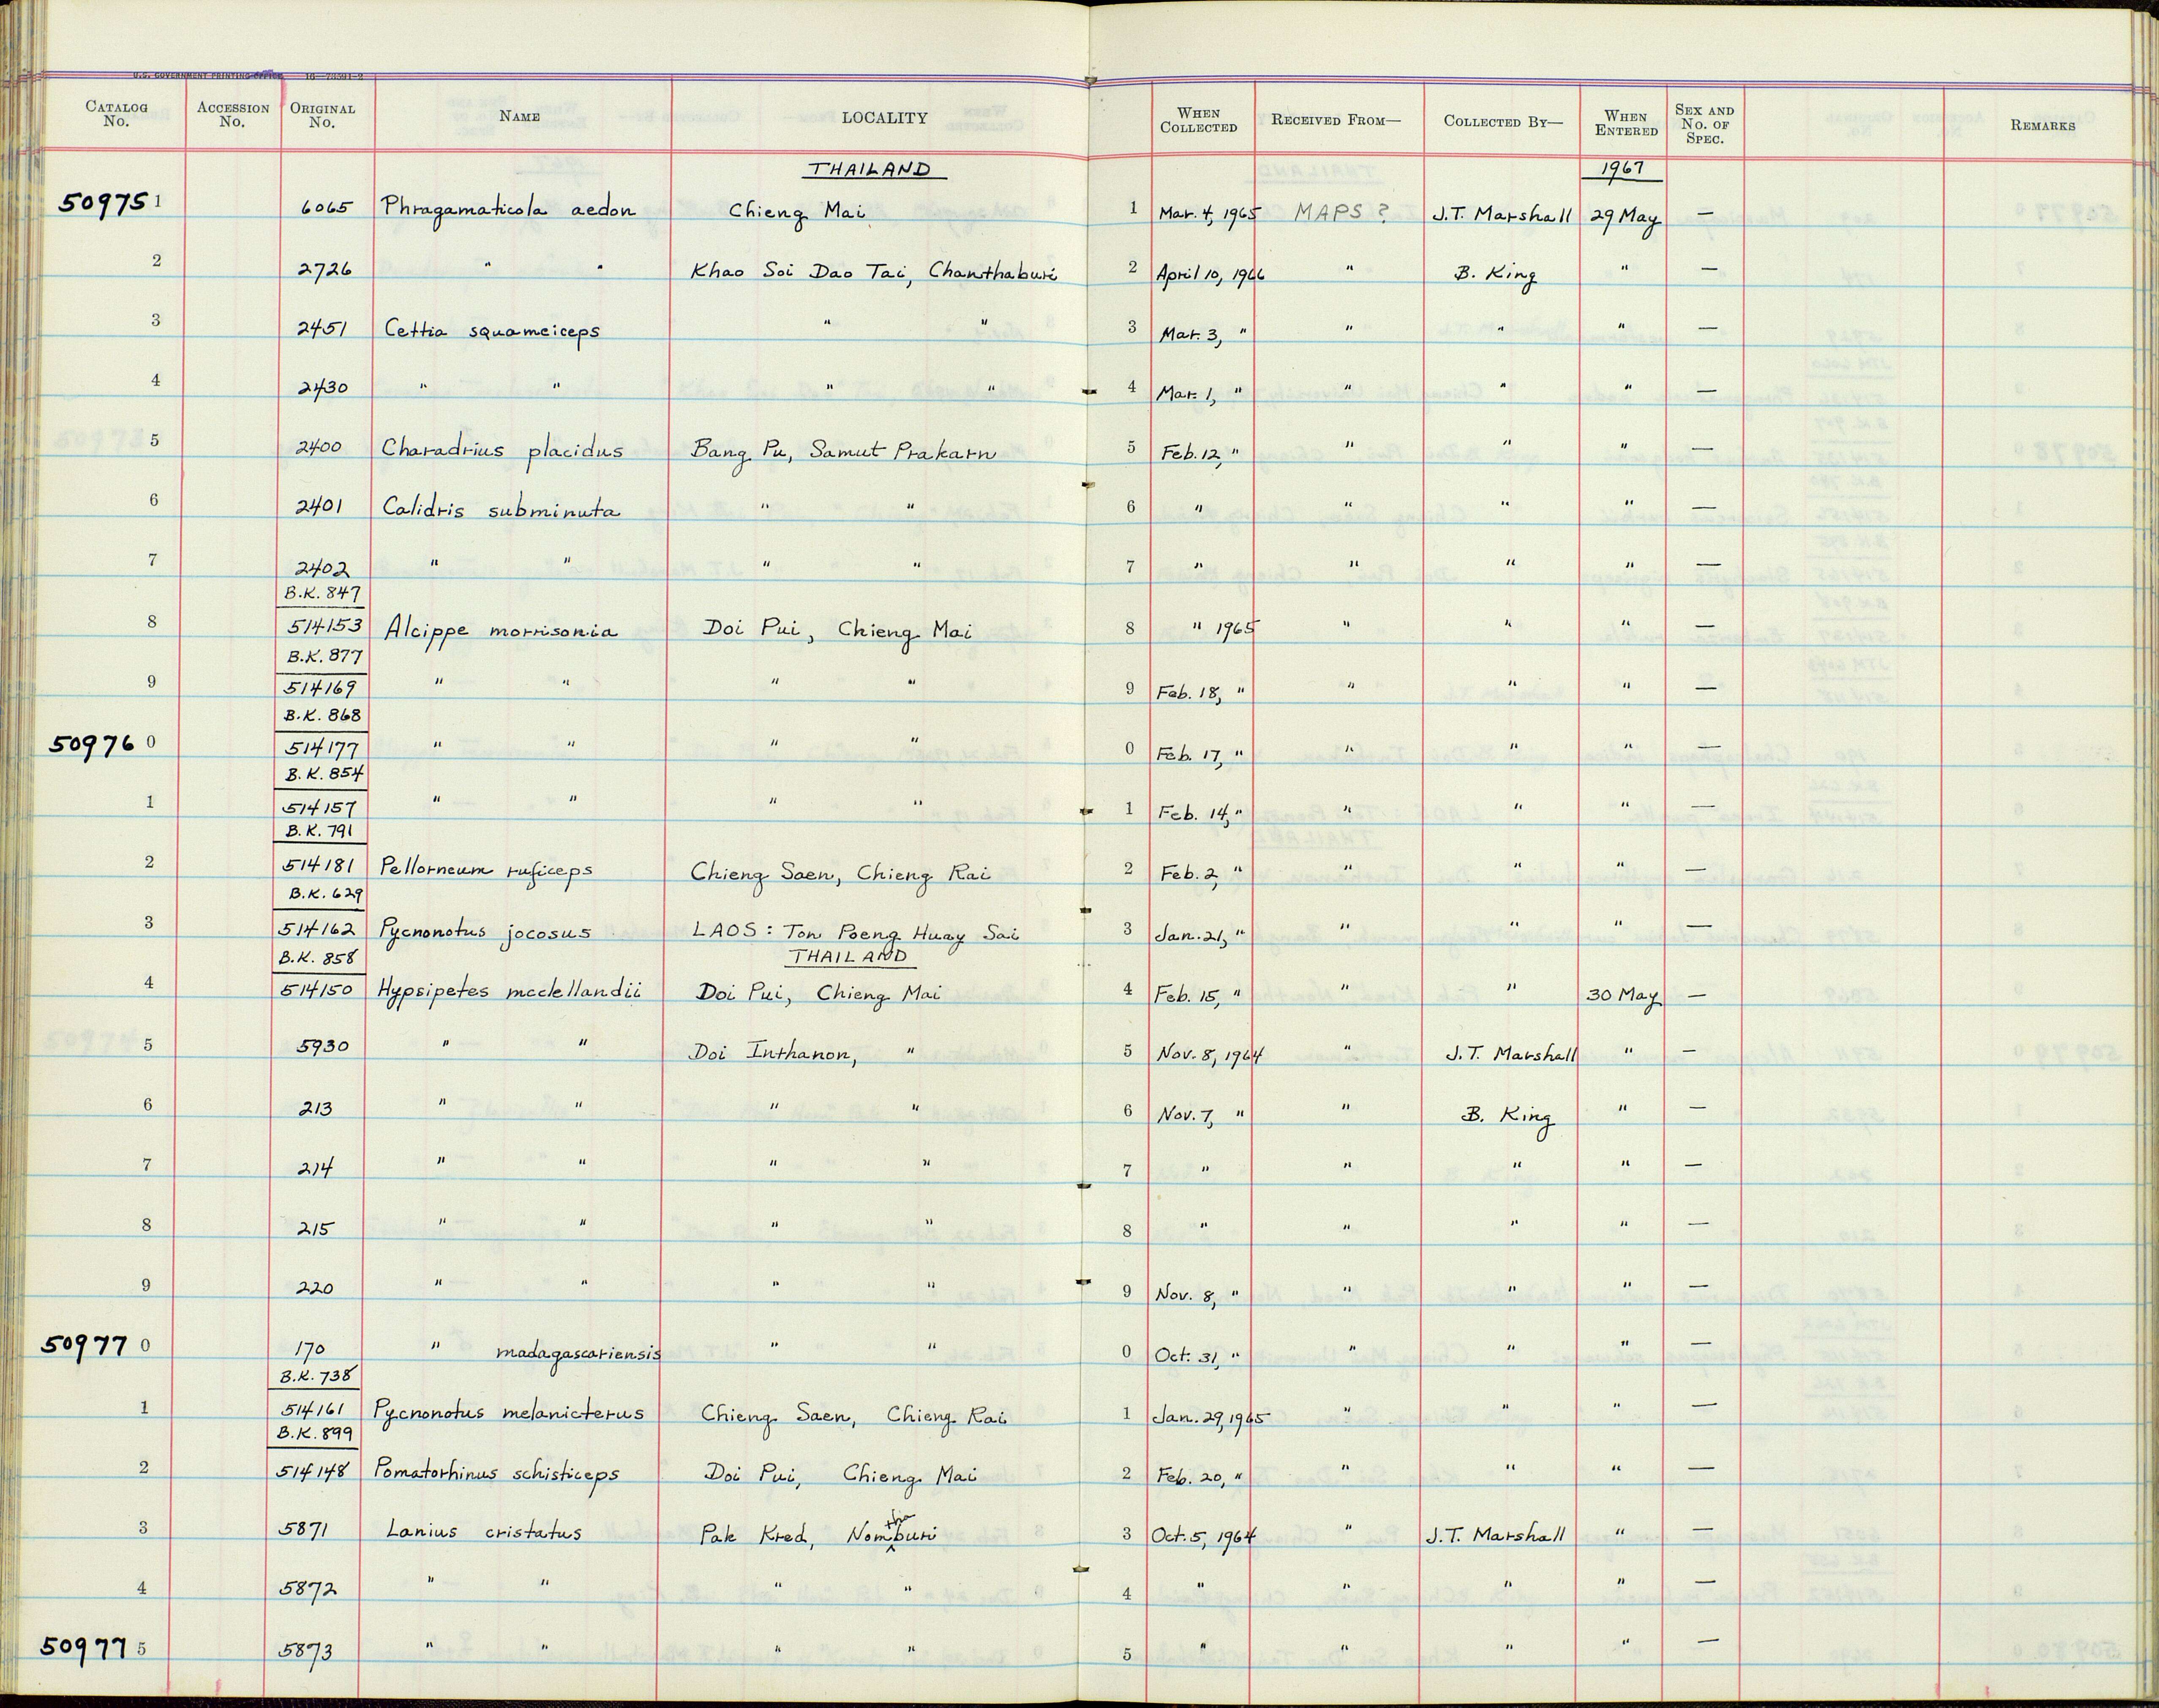 U.S. GOVERNMENT PRINTING OFFICE 16—73591-2
CATALOG No. ACCESSION No. ORIGINAL No. NAME LOCALITY WHEN COLLECTED RECEIVED FROM— COLLECTED BY— WHEN ENTERED SEX AND No. OF SPEC. REMARKS
THAILAND 1967
50975 1 6065 Phragamaticola aedon Chieng Mai 1 Mar. 4, 1965 MAPS ? J.T. Marshall 29 May —
2 2726 " " Khao Soi Dao Tai, Chanthaburi 2 April 10, 1966 " B. King " —
3 2451 Cettia squameiceps " " 3 Mar. 3, " " " " —
4 2430 " " " " 4 Mar. 1, " " " " —
5 2400 Charadrius placidus Bang Pu, Samut Prakarn 5 Feb. 12, " " " " —
6 2401 Calidris subminuta " " 6 " " " " —
7 2402 " " " " 7 " " " " —
B.K. 847
8 514153 Alcippe morrisonia Doi Pui, Chieng Mai 8 " 1965 " " " —
B.K. 877
9 514169 " " " " 9 Feb. 18, " " " " —
B.K. 868
50976 0 514177 " " " " 0 Feb. 17, " " " " —
B.K. 854
1 514157 " " " " 1 Feb. 14, " " " " —
B.K. 791
2 514181 Pellorneum ruficeps Chieng Saen, Chieng Rai 2 Feb. 2, " " " " —
B.K. 629
3 514162 Pycnonotus jocosus LAOS : Ton Poeng Huay Sai 3 Jan. 21, " " " " —
B.K. 858 THAILAND
4 514150 Hypsipetes mcclellandii Doi Pui, Chieng Mai 4 Feb. 15, " " " 30 May —
5 5930 " " Doi Inthanon, " 5 Nov. 8, 1964 " J.T. Marshall " —
6 213 " " " " 6 Nov. 7, " " B. King " —
7 214 " " " " 7 " " " " —
8 215 " " " " 8 " " " " —
9 220 " " " " 9 Nov. 8, " " " " —
50977 0 170 " madagascariensis " " 0 Oct. 31, " " " " —
B.K. 738
1 514161 Pycnonotus melanicterus Chieng Saen, Chieng Rai 1 Jan. 29, 1965 " " " —
B.K. 899
2 514148 Pomatorhinus schisticeps Doi Pui, Chieng Mai 2 Feb. 20, " " " " —
3 5871 Lanius cristatus Pak Kred, Nomthaburi 3 Oct. 5, 1964 " J.T. Marshall " —
4 5872 " " " " 4 " " " " —
50977 5 5873 " " " " 5 " " " " —